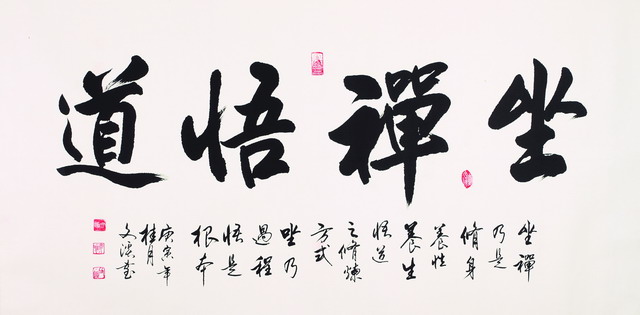 坐禪悟道
坐禪
乃是
脩身
養性
養生
悟道
之脩煉
方式
坐乃
過程
悟是
根本
庚寅年
桂月